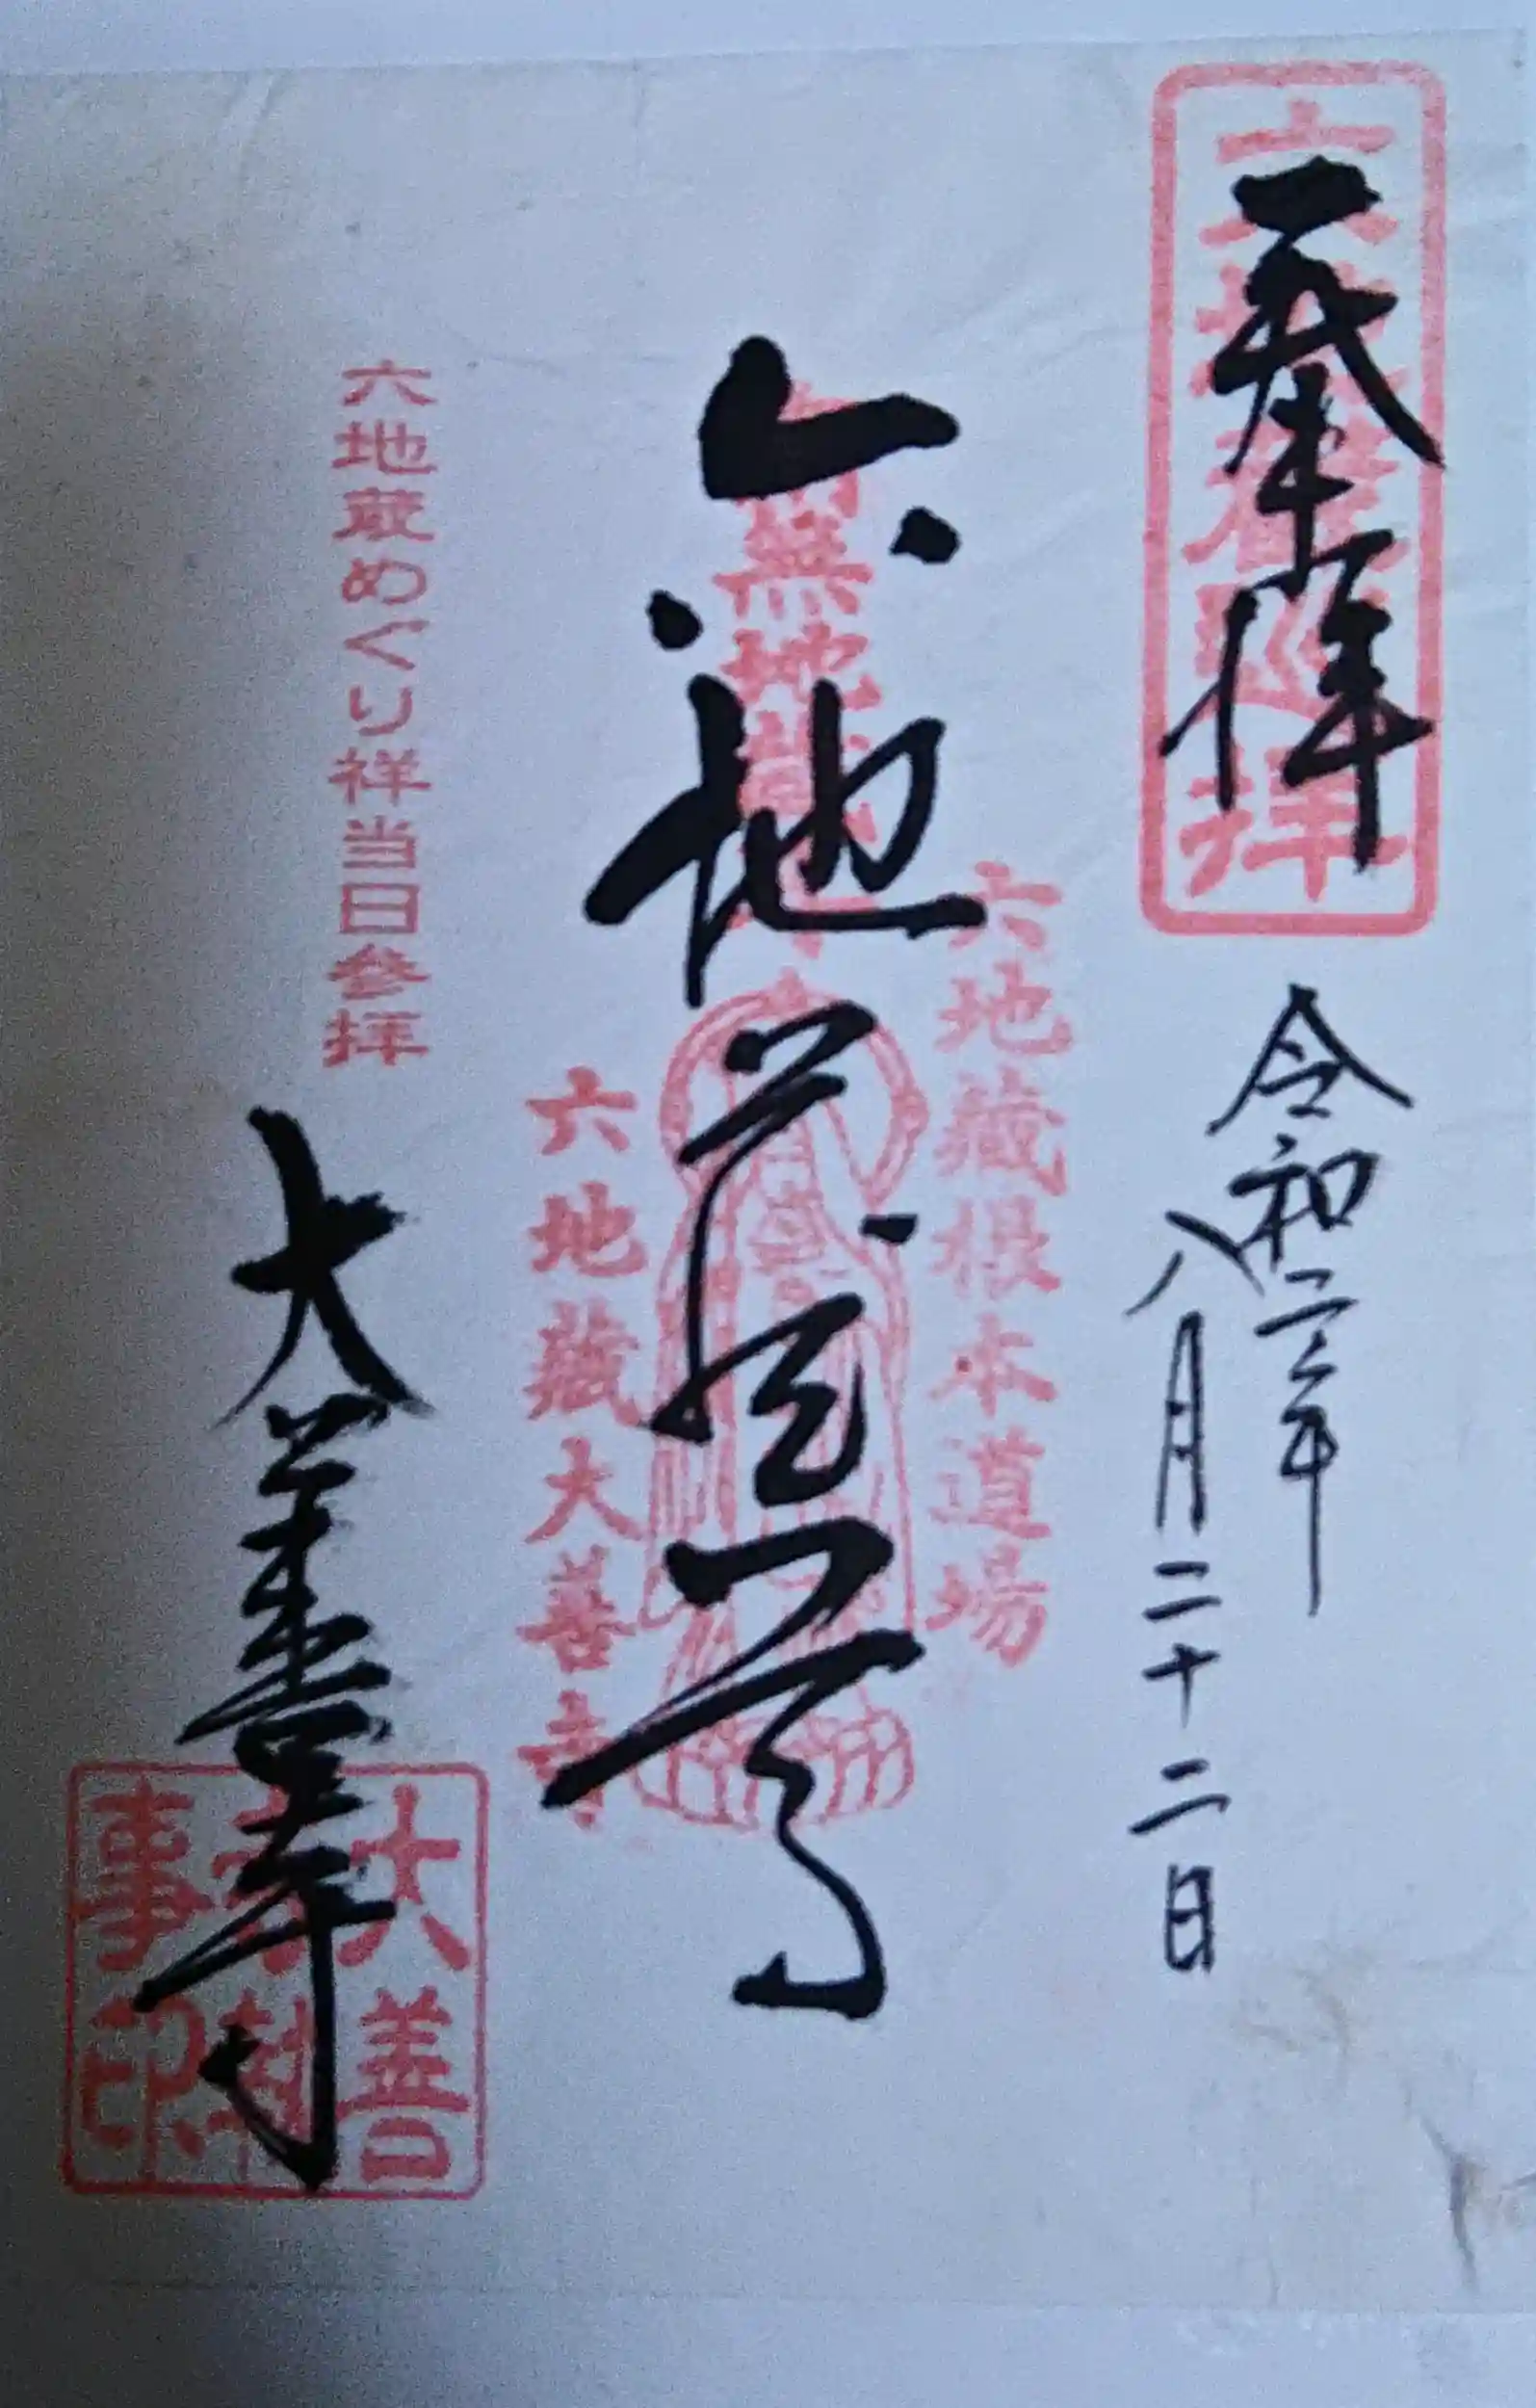 奉拝
令和二年
八月二十二日
六地蔵根本道場
六地蔵尊
六地蔵大善寺
六地蔵めぐり祥当日参拝
大善寺
大善
事印